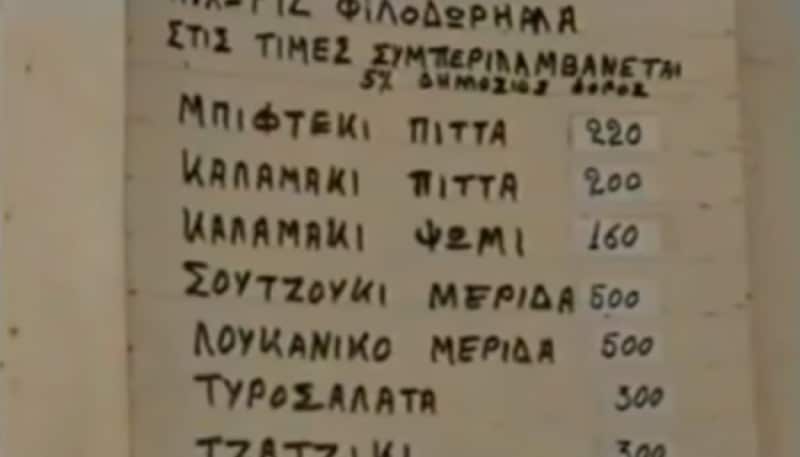 ΦΙΛΟΔΩΡΗΜΑ
ΣΤΙΣ ΤΙΜΕΣ ΣΥΜΠΕΡΙΛΑΜΒΑΝΕΤΑΙ
5% ΔΗΜΟΣΙΟΣ ΦΟΡΟΣ
ΜΠΙΦΤΕΚΙ ΠΙΤΤΑ 220
ΚΑΛΑΜΑΚΙ ΠΙΤΤΑ 200
ΚΑΛΑΜΑΚΙ ΨΩΜΙ 160
ΣΟΥΤΖΟΥΚΙ ΜΕΡΙΔΑ 500
ΛΟΥΚΑΝΙΚΟ ΜΕΡΙΔΑ 500
ΤΥΡΟΣΑΛΑΤΑ 300
ΤΖΑΤΖΙΚΙ 300